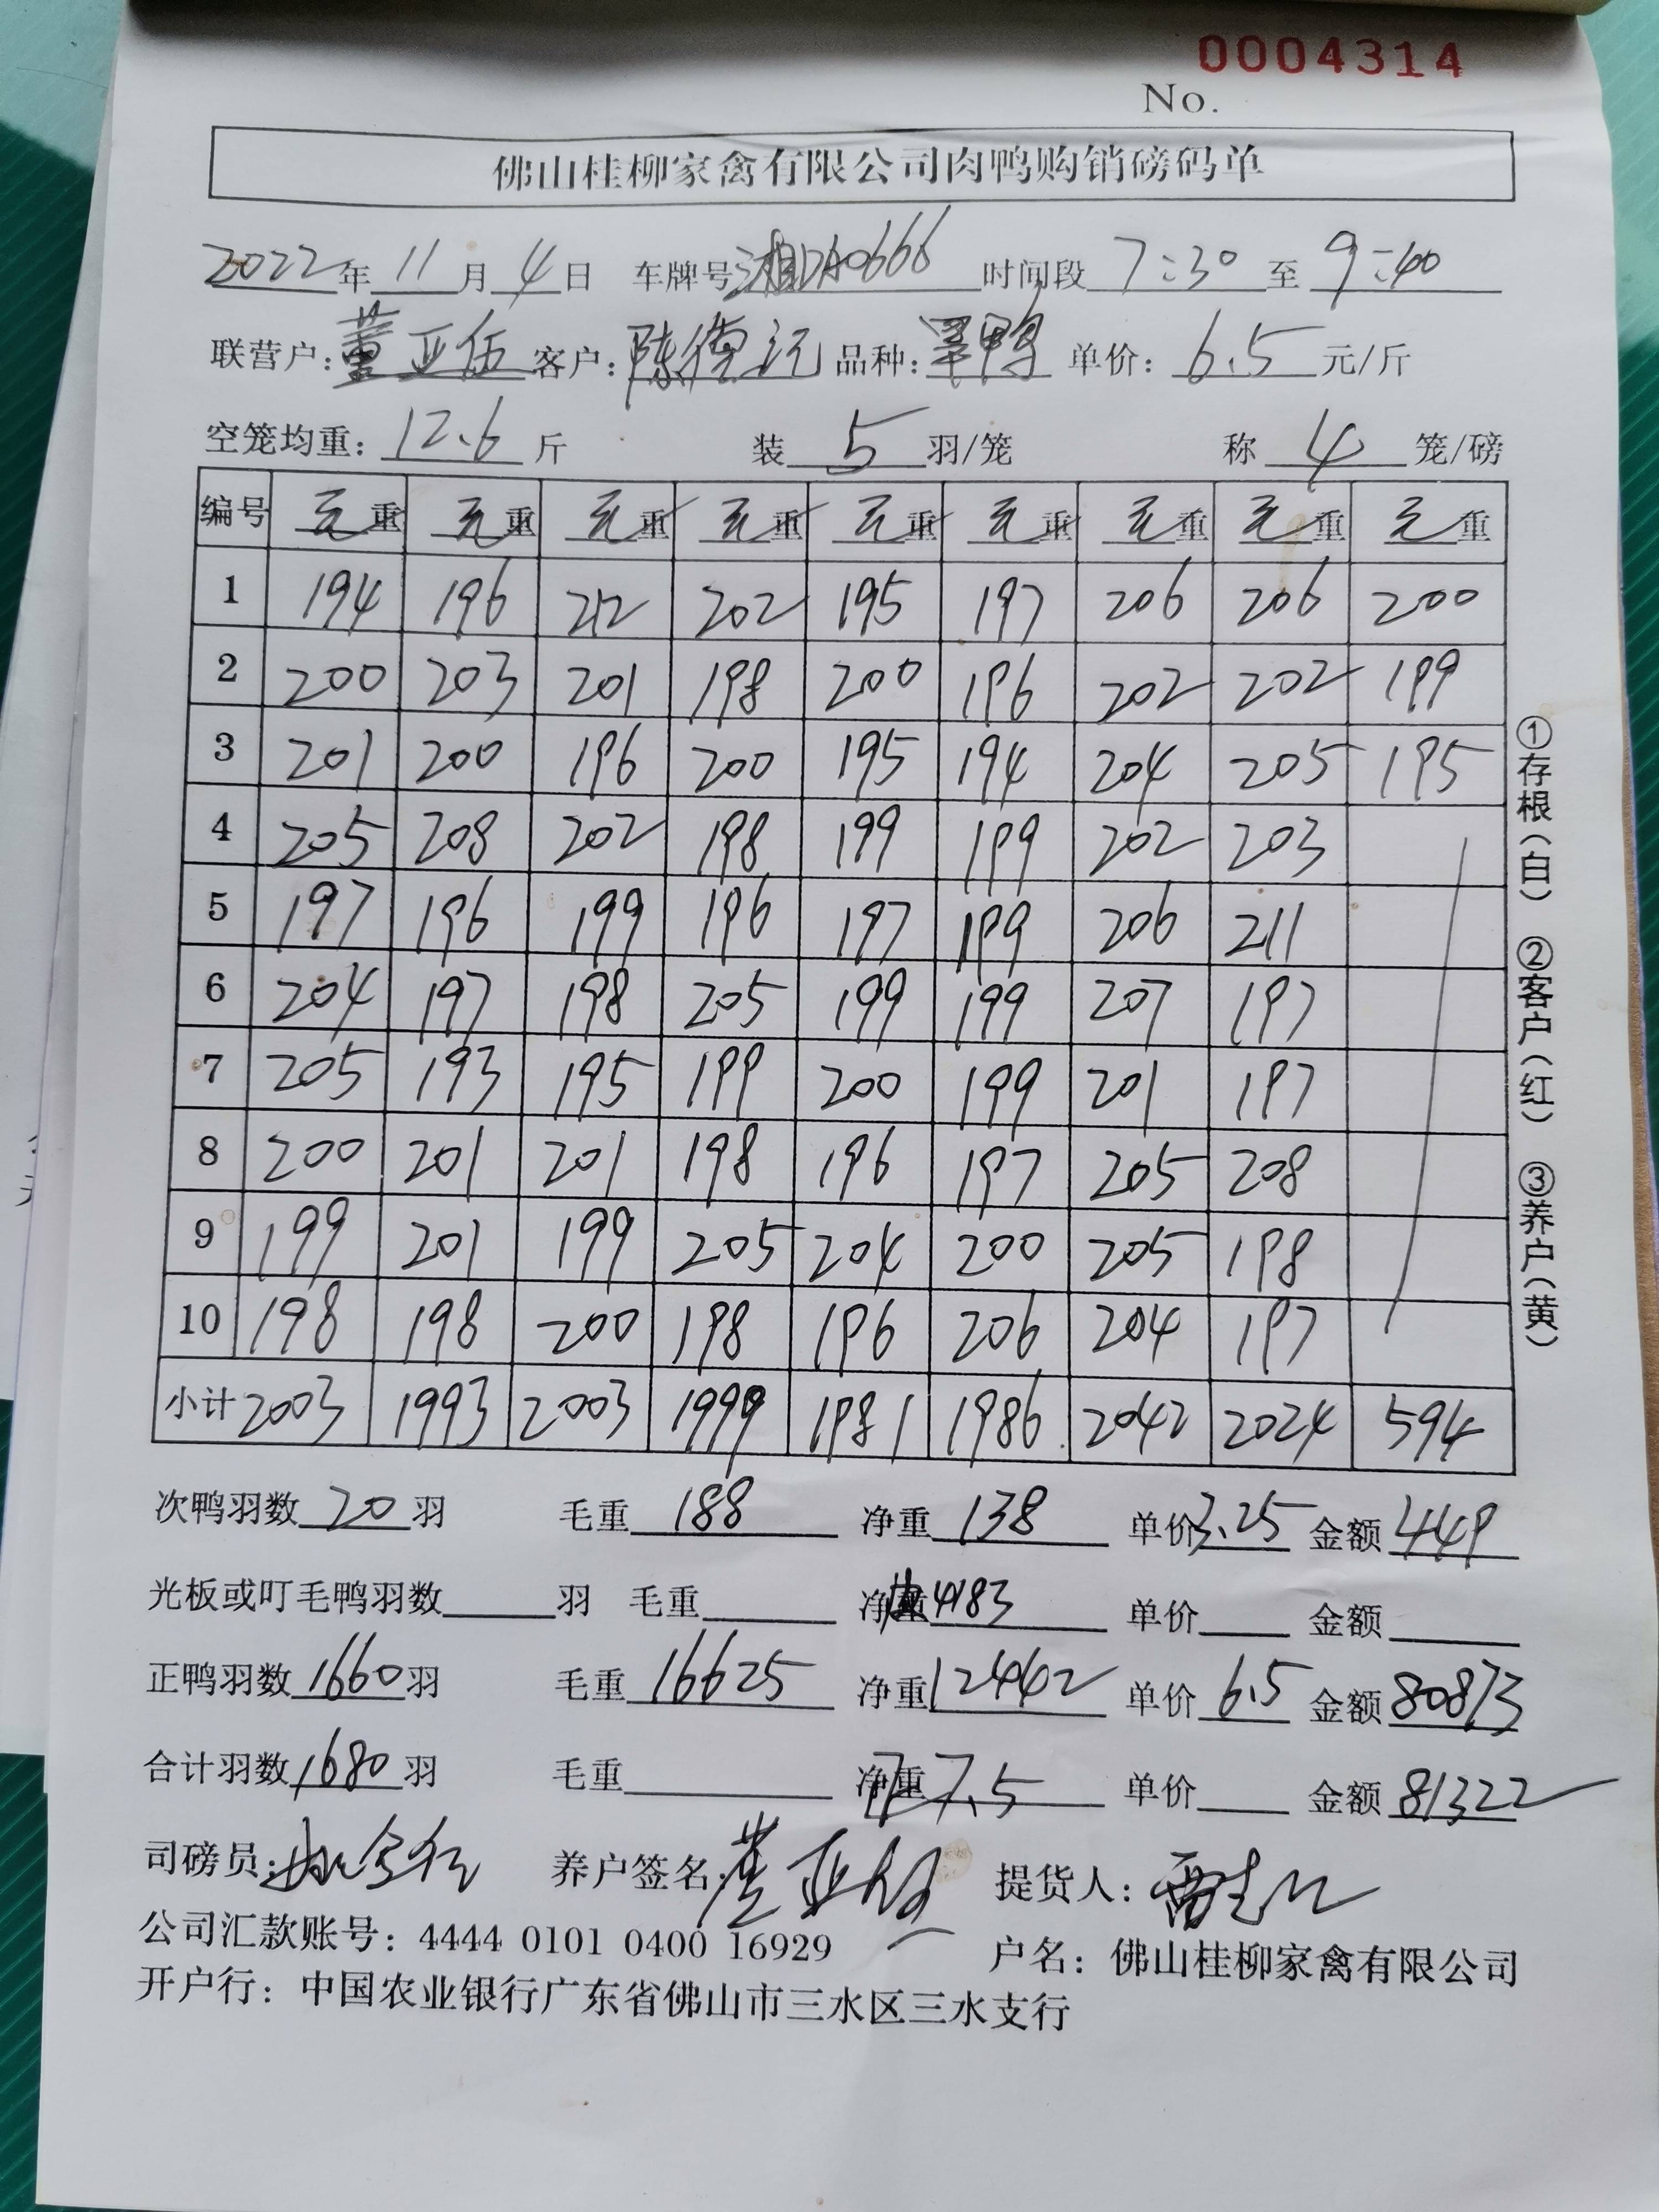 0004314
No.
佛山桂柳家禽有限公司肉鸭购销磅码单
2022年11月4日 车牌号湘DA0666 时间段7:30至9:40
联营户:董亚伍 客户:陈德 品种:鸭 单价:6.5元/斤
空笼均重:12.6斤 装5羽/笼 称4笼/磅
编号 毛重 毛重 毛重 毛重 毛重 毛重 毛重 毛重 毛重
1 194 196 212 202 195 197 206 206 200
2 200 203 201 198 200 196 202 202 199
3 201 200 196 200 195 194 204 205 195
4 205 208 202 198 199 199 202 203
5 197 196 199 196 197 199 206 211
6 204 197 198 205 199 199 207 197
7 205 193 195 199 200 199 201 197
8 200 201 201 198 196 197 205 208
9 199 201 199 205 204 200 205 198
10 198 198 200 198 196 206 204 197
小计 2003 1993 2003 1999 1981 1986 2042 2024 594
①存根(白) ②客户(红) ③养户(黄)
次鸭羽数20羽 毛重188 净重138 单价3.25 金额449
光板或叮毛鸭羽数 羽 毛重 净重4183 单价 金额
正鸭羽数1660羽 毛重16625 净重12442 单价6.5 金额80873
合计羽数1680羽 毛重 净重7.5 单价 金额81322
司磅员: 养户签名:董亚伍 提货人:
公司汇款账号:4444 0101 0400 16929 户名:佛山桂柳家禽有限公司
开户行:中国农业银行广东省佛山市三水区三水支行